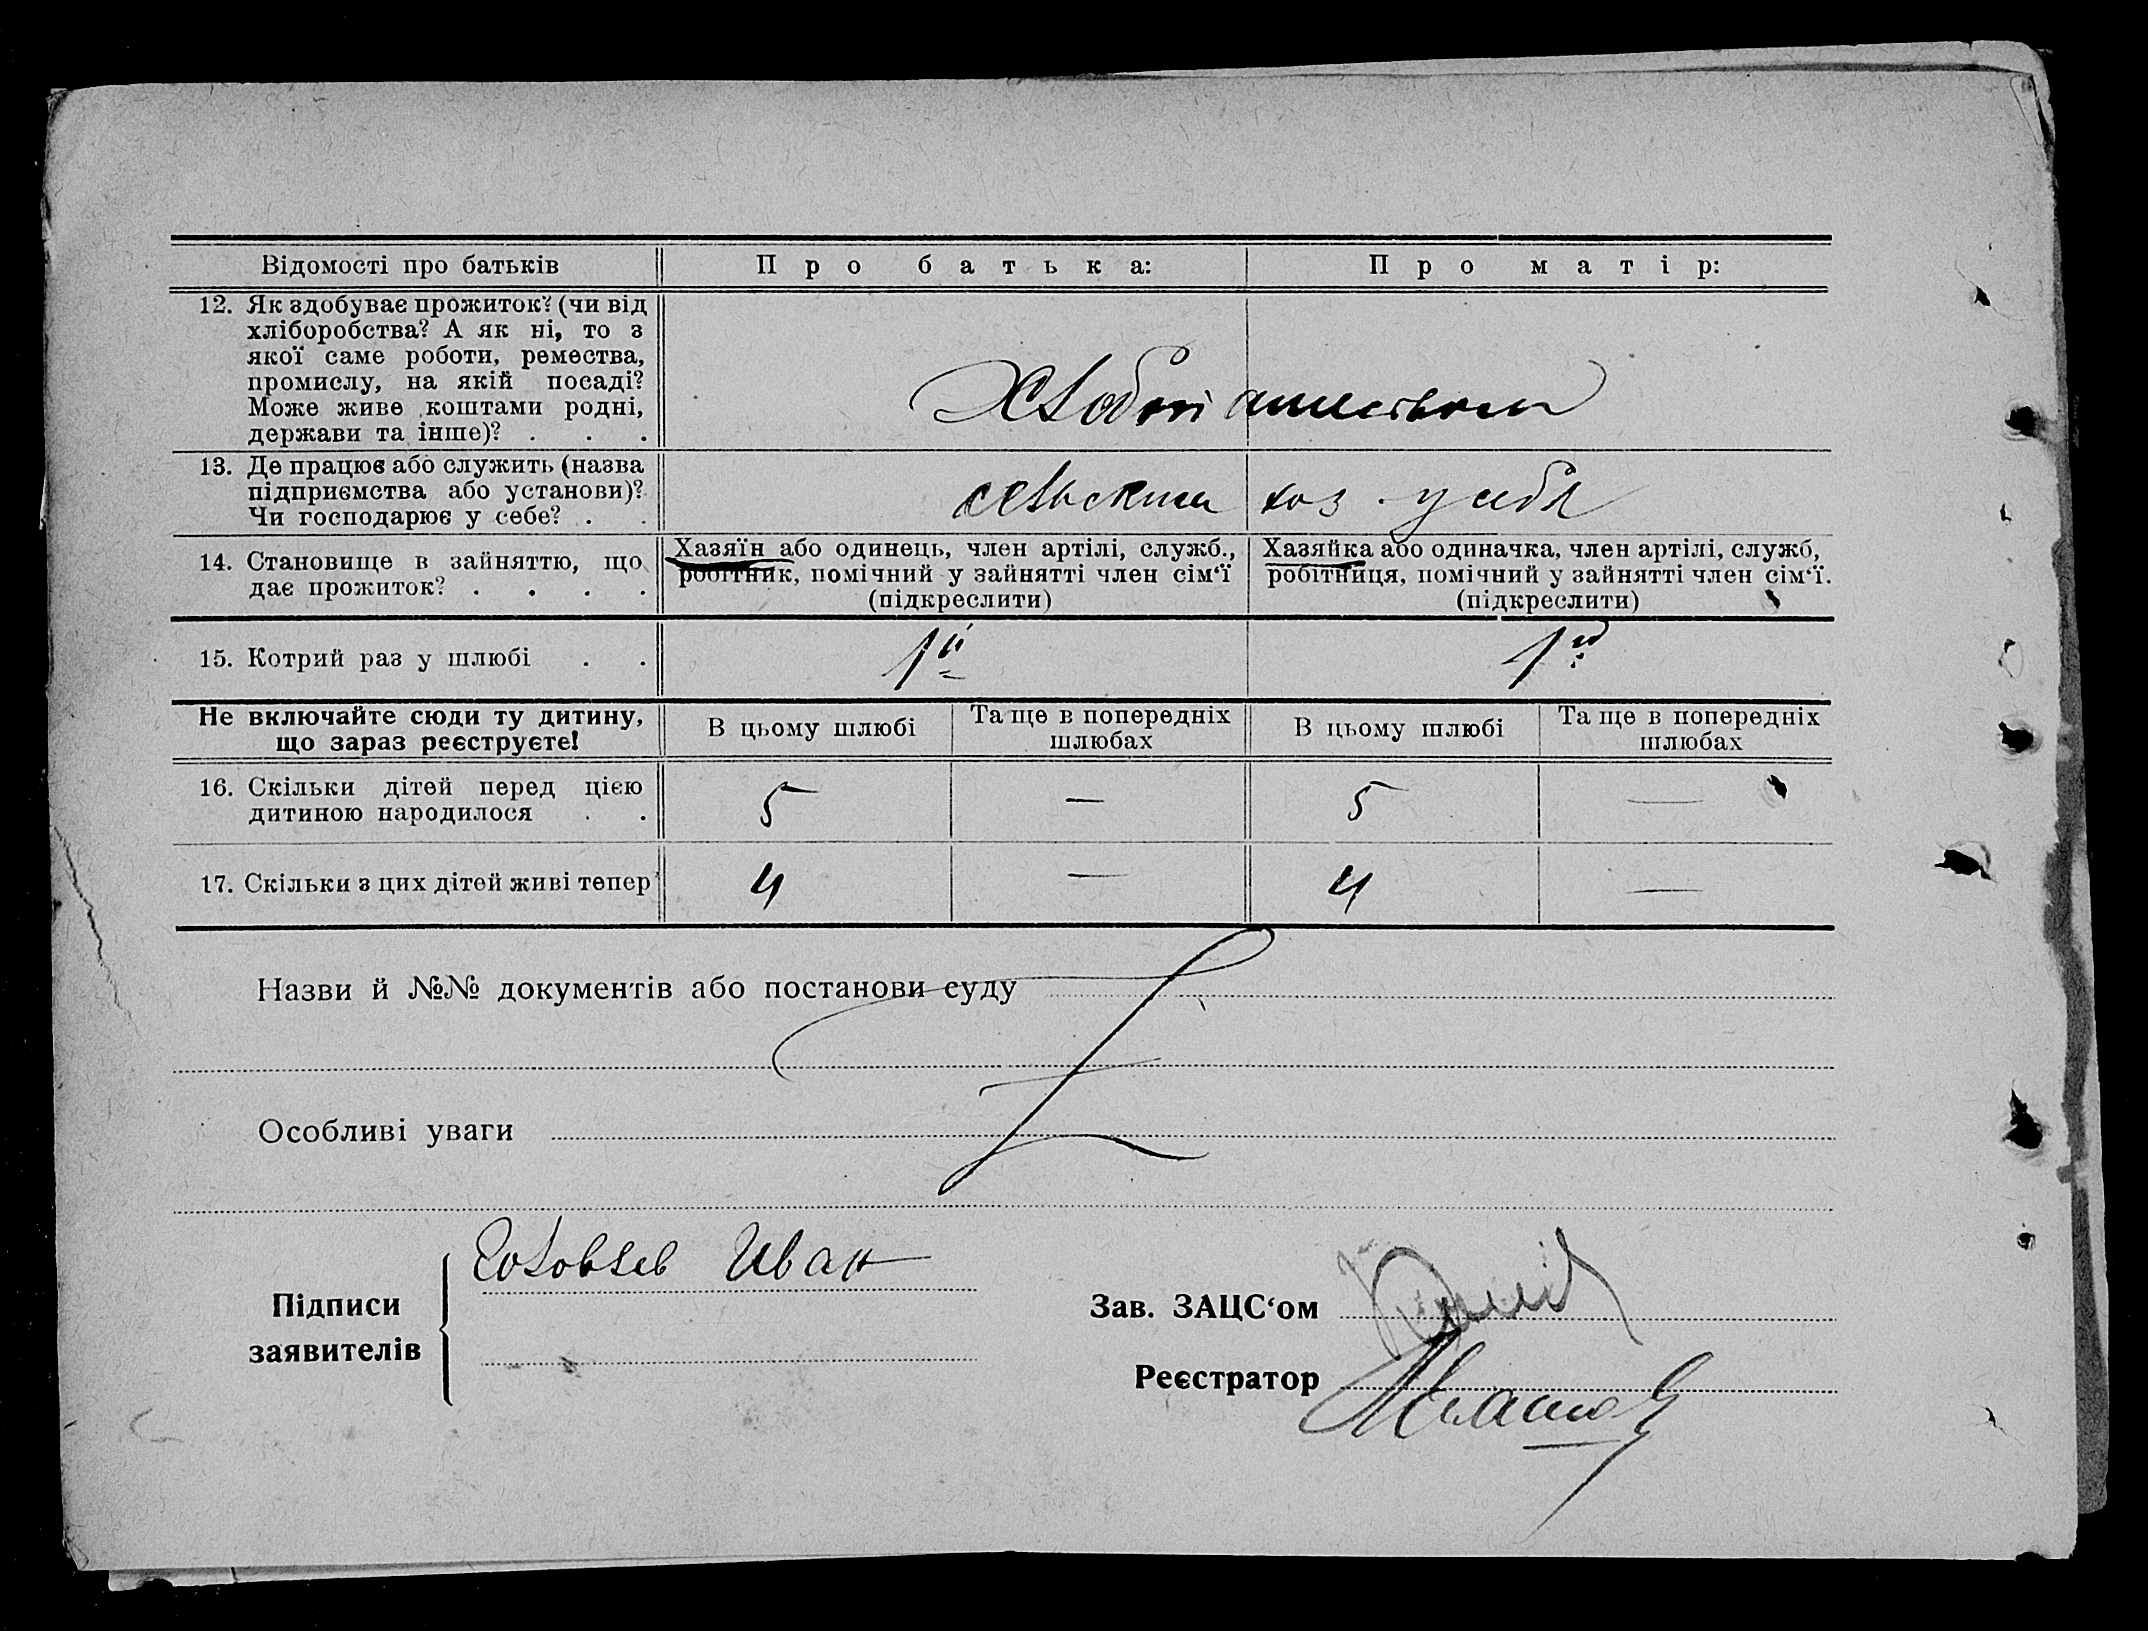 Відомості про батьків
Про батька:
Про матір:
12. Як здобуває прожиток? (чи від
хліборобства? А як ні, то з
якої саме роботи, ремества,
промислу, на якій посаді?
Може живе коштами родні,
держави та інше)? . . .
13. Де працює або служить (назва
підприємства або установи)?
Чи господарює у себе? . .
сельским хоз. у себя
14. Становище в зайняттю, що
дає прожиток? . . . .
Хазяїн або одинець, член артілі, служб.,
робітник, помічний у зайнятті член сім'ї
(підкреслити)
Хазяйка або одиначка, член артілі, служб,
робітниця, помічний у зайнятті член сім'ї.
(підкреслити)
15. Котрий раз у шлюбі . .
1й
1й
Не включайте сюди ту дитину,
що зараз реєструєте!
В цьому шлюбі
Та ще в попередніх
шлюбах
В цьому шлюбі
Та ще в попередніх
шлюбах
16. Скільки дітей перед цією
дитиною народилося . .
5 — 5 —
17. Скільки з цих дітей живі тепер
4 — 4 —
Назви й №№ документів або постанови суду
Особливі уваги
Підписи
заявителів
Иван
Зав. ЗАЦС‘ом
Реєстратор